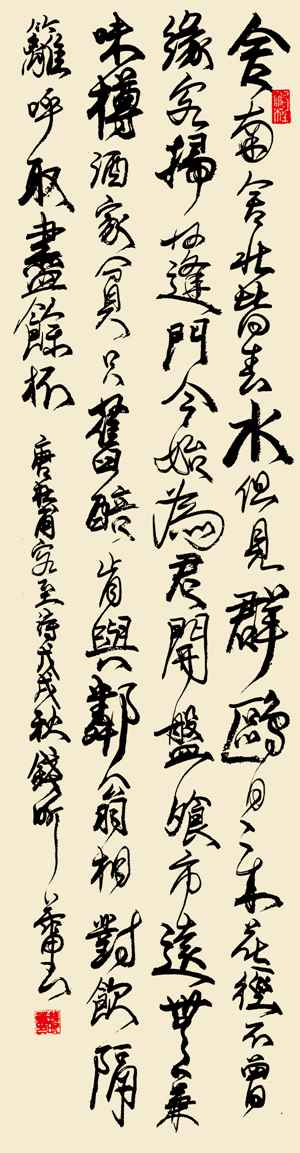 舍南舍北皆春水但見群鷗日々來花徑不曾
緣客掃蓬門今始為君開盤飧市遠無兼
味樽酒家貧只舊醅肯與鄰翁相對飲隔
籬呼取盡餘杯
唐杜甫客至詩戊戌秋